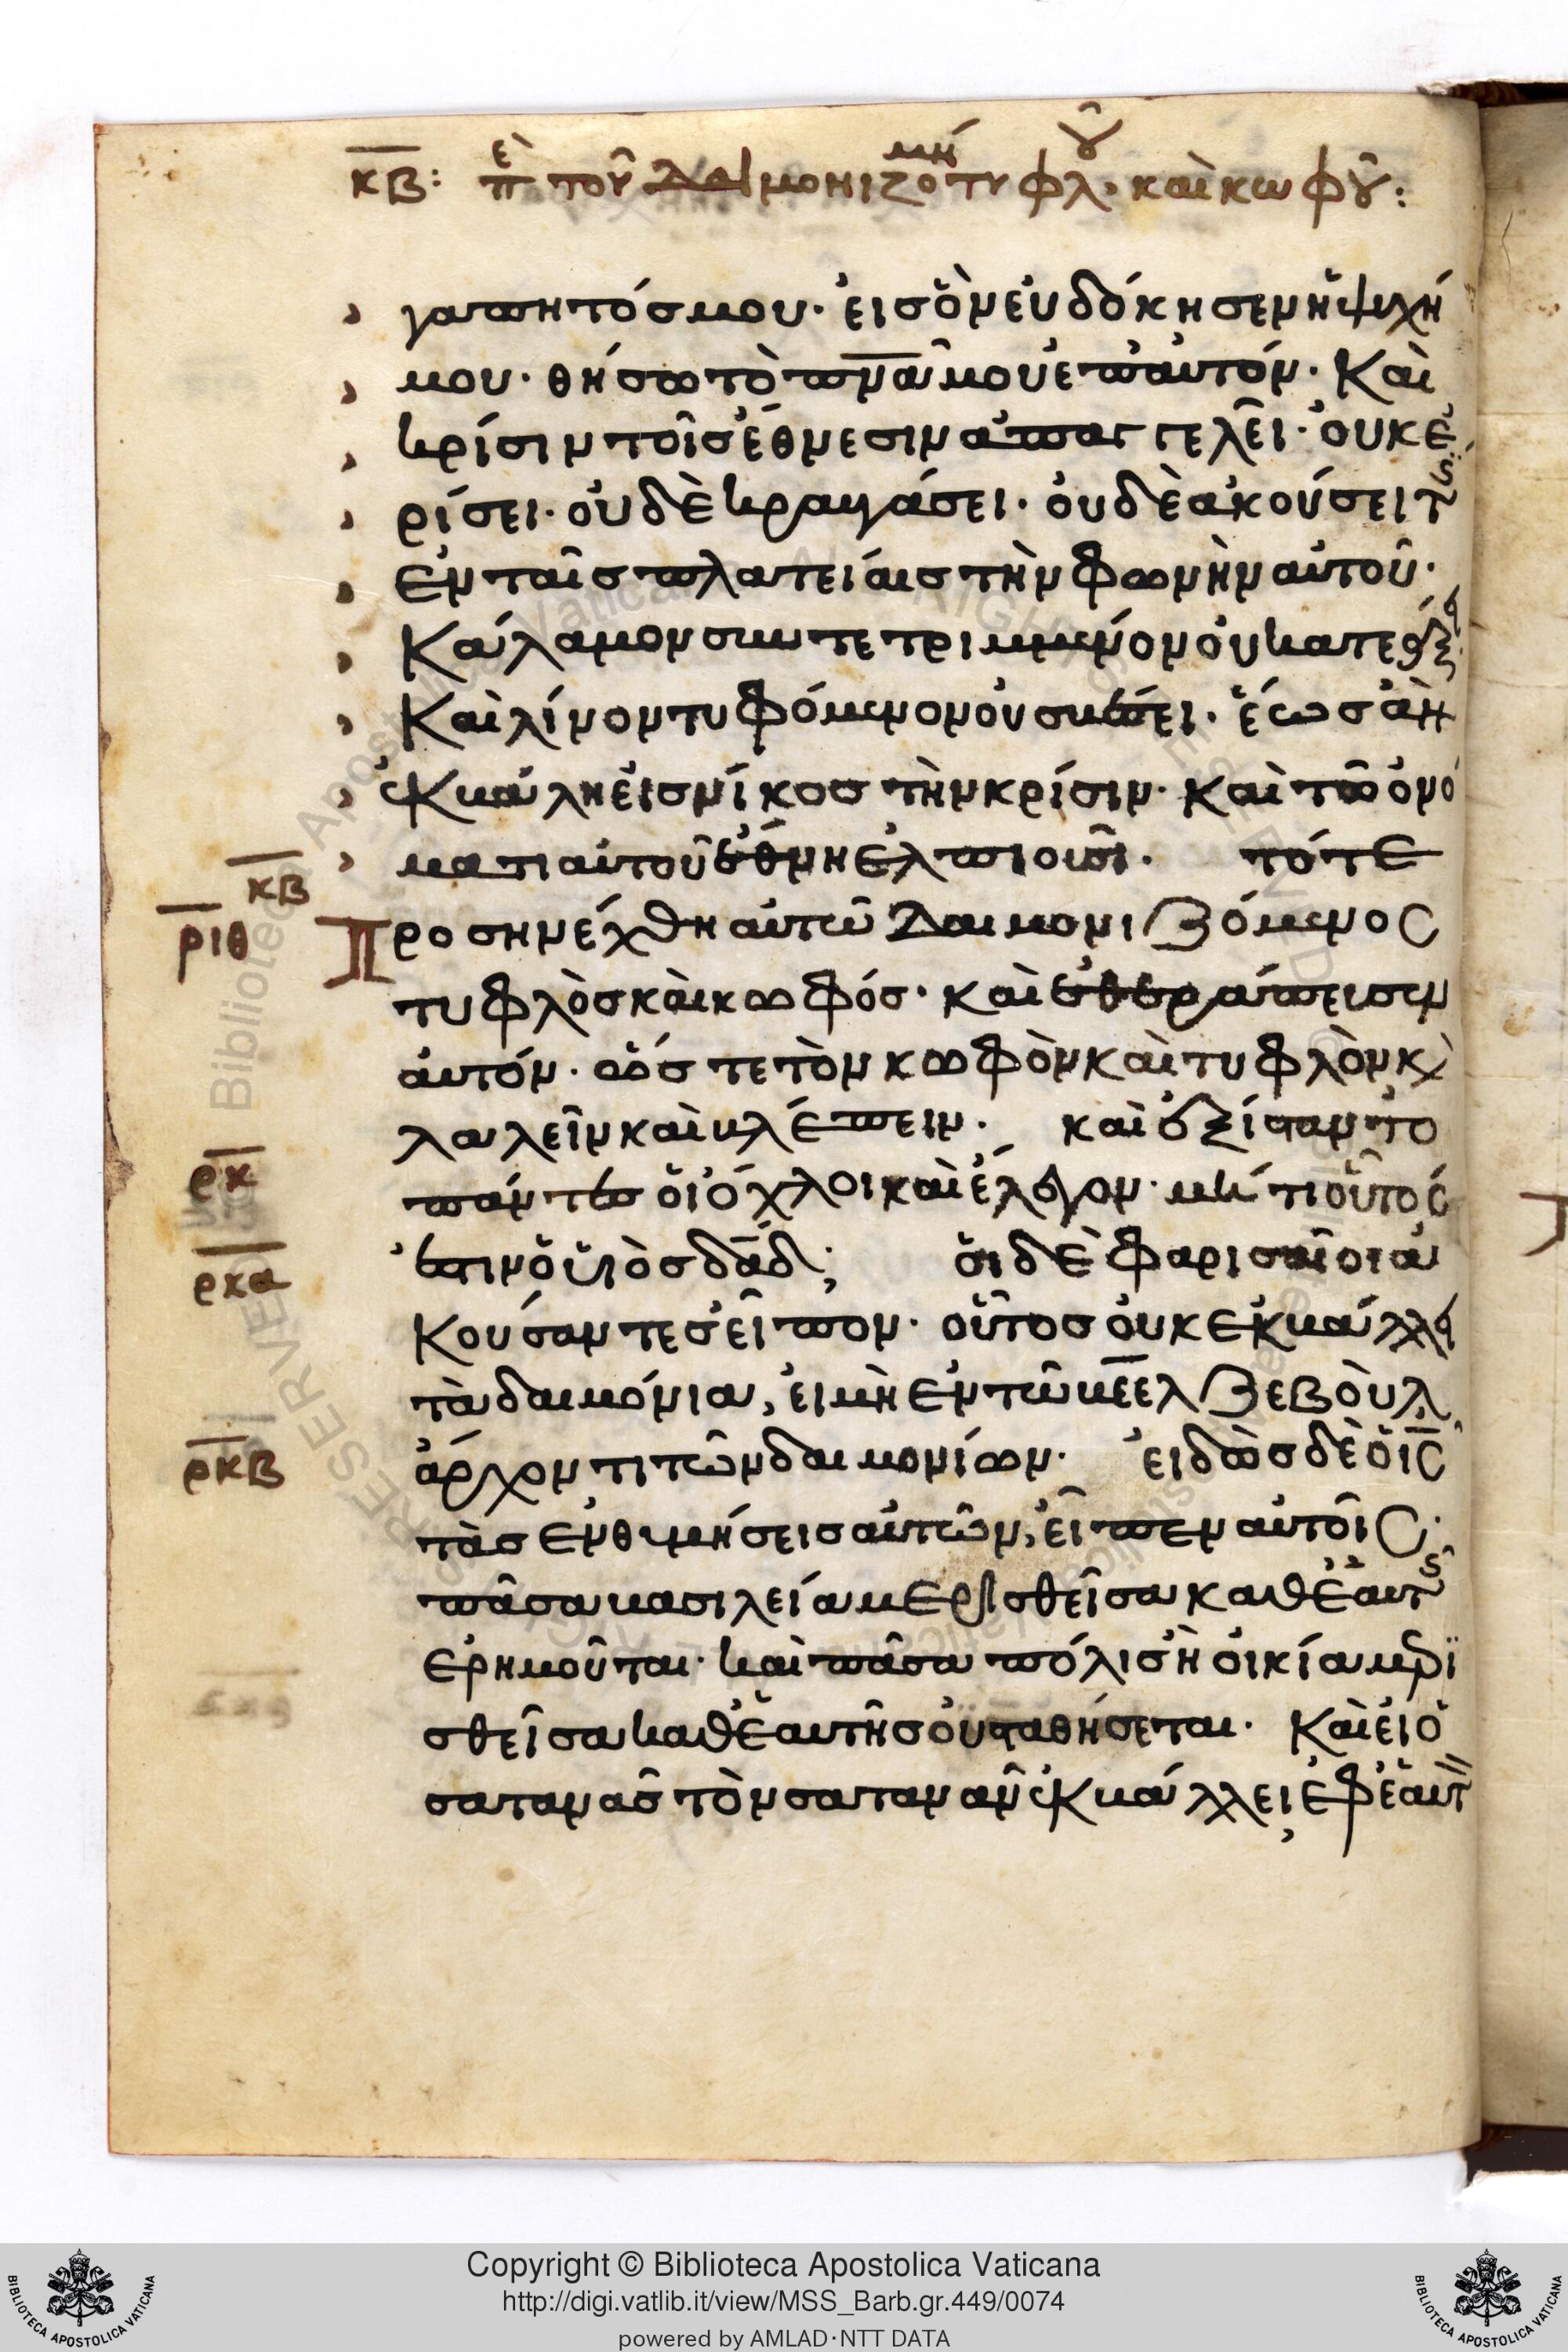 κβ: πε τοῦ δαιμονιζομένου τυφλ. καὶ κωφοῦ:
γαπητόσ μου· εἰσ ὃν εὐδόκησεν ἡ ψυχή
μου· θήσω τὸ πνᾶ μου ἐπ αὐτόν· Καὶ
κρίσιν τοῖσ ἔθνεσιν ἀπαγγελεῖ· οὐκ ἐ
ρίσει· οὐδὲ κραυγάσει· οὐδὲ ἀκούσει τισ
ἐν ταῖσ πλατείαισ τὴν φωνὴν αὐτοῦ·
Κάλαμον συντετριμμένον οὐ κατεάξει
Καὶ λίνον τυφόμενον οὐ σβέσει· ἕωσ ἂν
ἐκβάλη εἰσ νίκοσ τὴν κρίσιν· Καὶ τῶ ὀνό
ματι αὐτοῦ ἔθνη ἐλπιοῦσι· τότε
κβ
ριθ
Προσηνέχθη αὐτῶ δαιμονιζόμενοσ
τυφλὸσ καὶ κωφόσ· καὶ ἐθεράπευσεν
αὐτόν· ὥστε τὸν κωφὸν καὶ τυφλὸν κὶ
λαλεῖν καὶ βλέπειν· καὶ ἐξίσταντο
ρκ
πάντεσ οἱ ὄχλοι καὶ ἔλεγον· μήτι οὗτόσ
ἐστιν ὁ υἱὸσ δᾱδ; οἱ δὲ φαρισαῖοι ἀ
ρκα
Κούσαντεσ εἶπον· οὗτοσ οὐκ ἐκβάλλει
τὰ δαιμόνια, εἰ μὴ ἐν τῶ βεελζεβοὺλ
ἄρχοντι τῶν δαιμονίων· εἰδὼσ δὲ ὁ ισ
ρκβ
τὰσ ἐνθυμήσεισ αὐτῶν, εἶπεν αὐτοῖσ·
πᾶσα βασιλεία μερισθεῖσα καθ ἑαυτῆσ
ἐρημοῦται· καὶ πᾶσα πόλισ ἢ οἰκία μερι
σθεῖσα καθ ἑαυτῆσ οὐ σταθήσεται· Καὶ εἰ ὁ
σατανᾶσ τὸν σατανᾶν ἐκβάλλει, ἐφ ἑαυτὸν
Copyright © Biblioteca Apostolica Vaticana
http://digi.vatlib.it/view/MSS_Barb.gr.449/0074
powered by AMLAD·NTT DATA
BIBLIOTECA APOSTOLICA VATICANA
BIBLIOTECA APOSTOLICA VATICANA